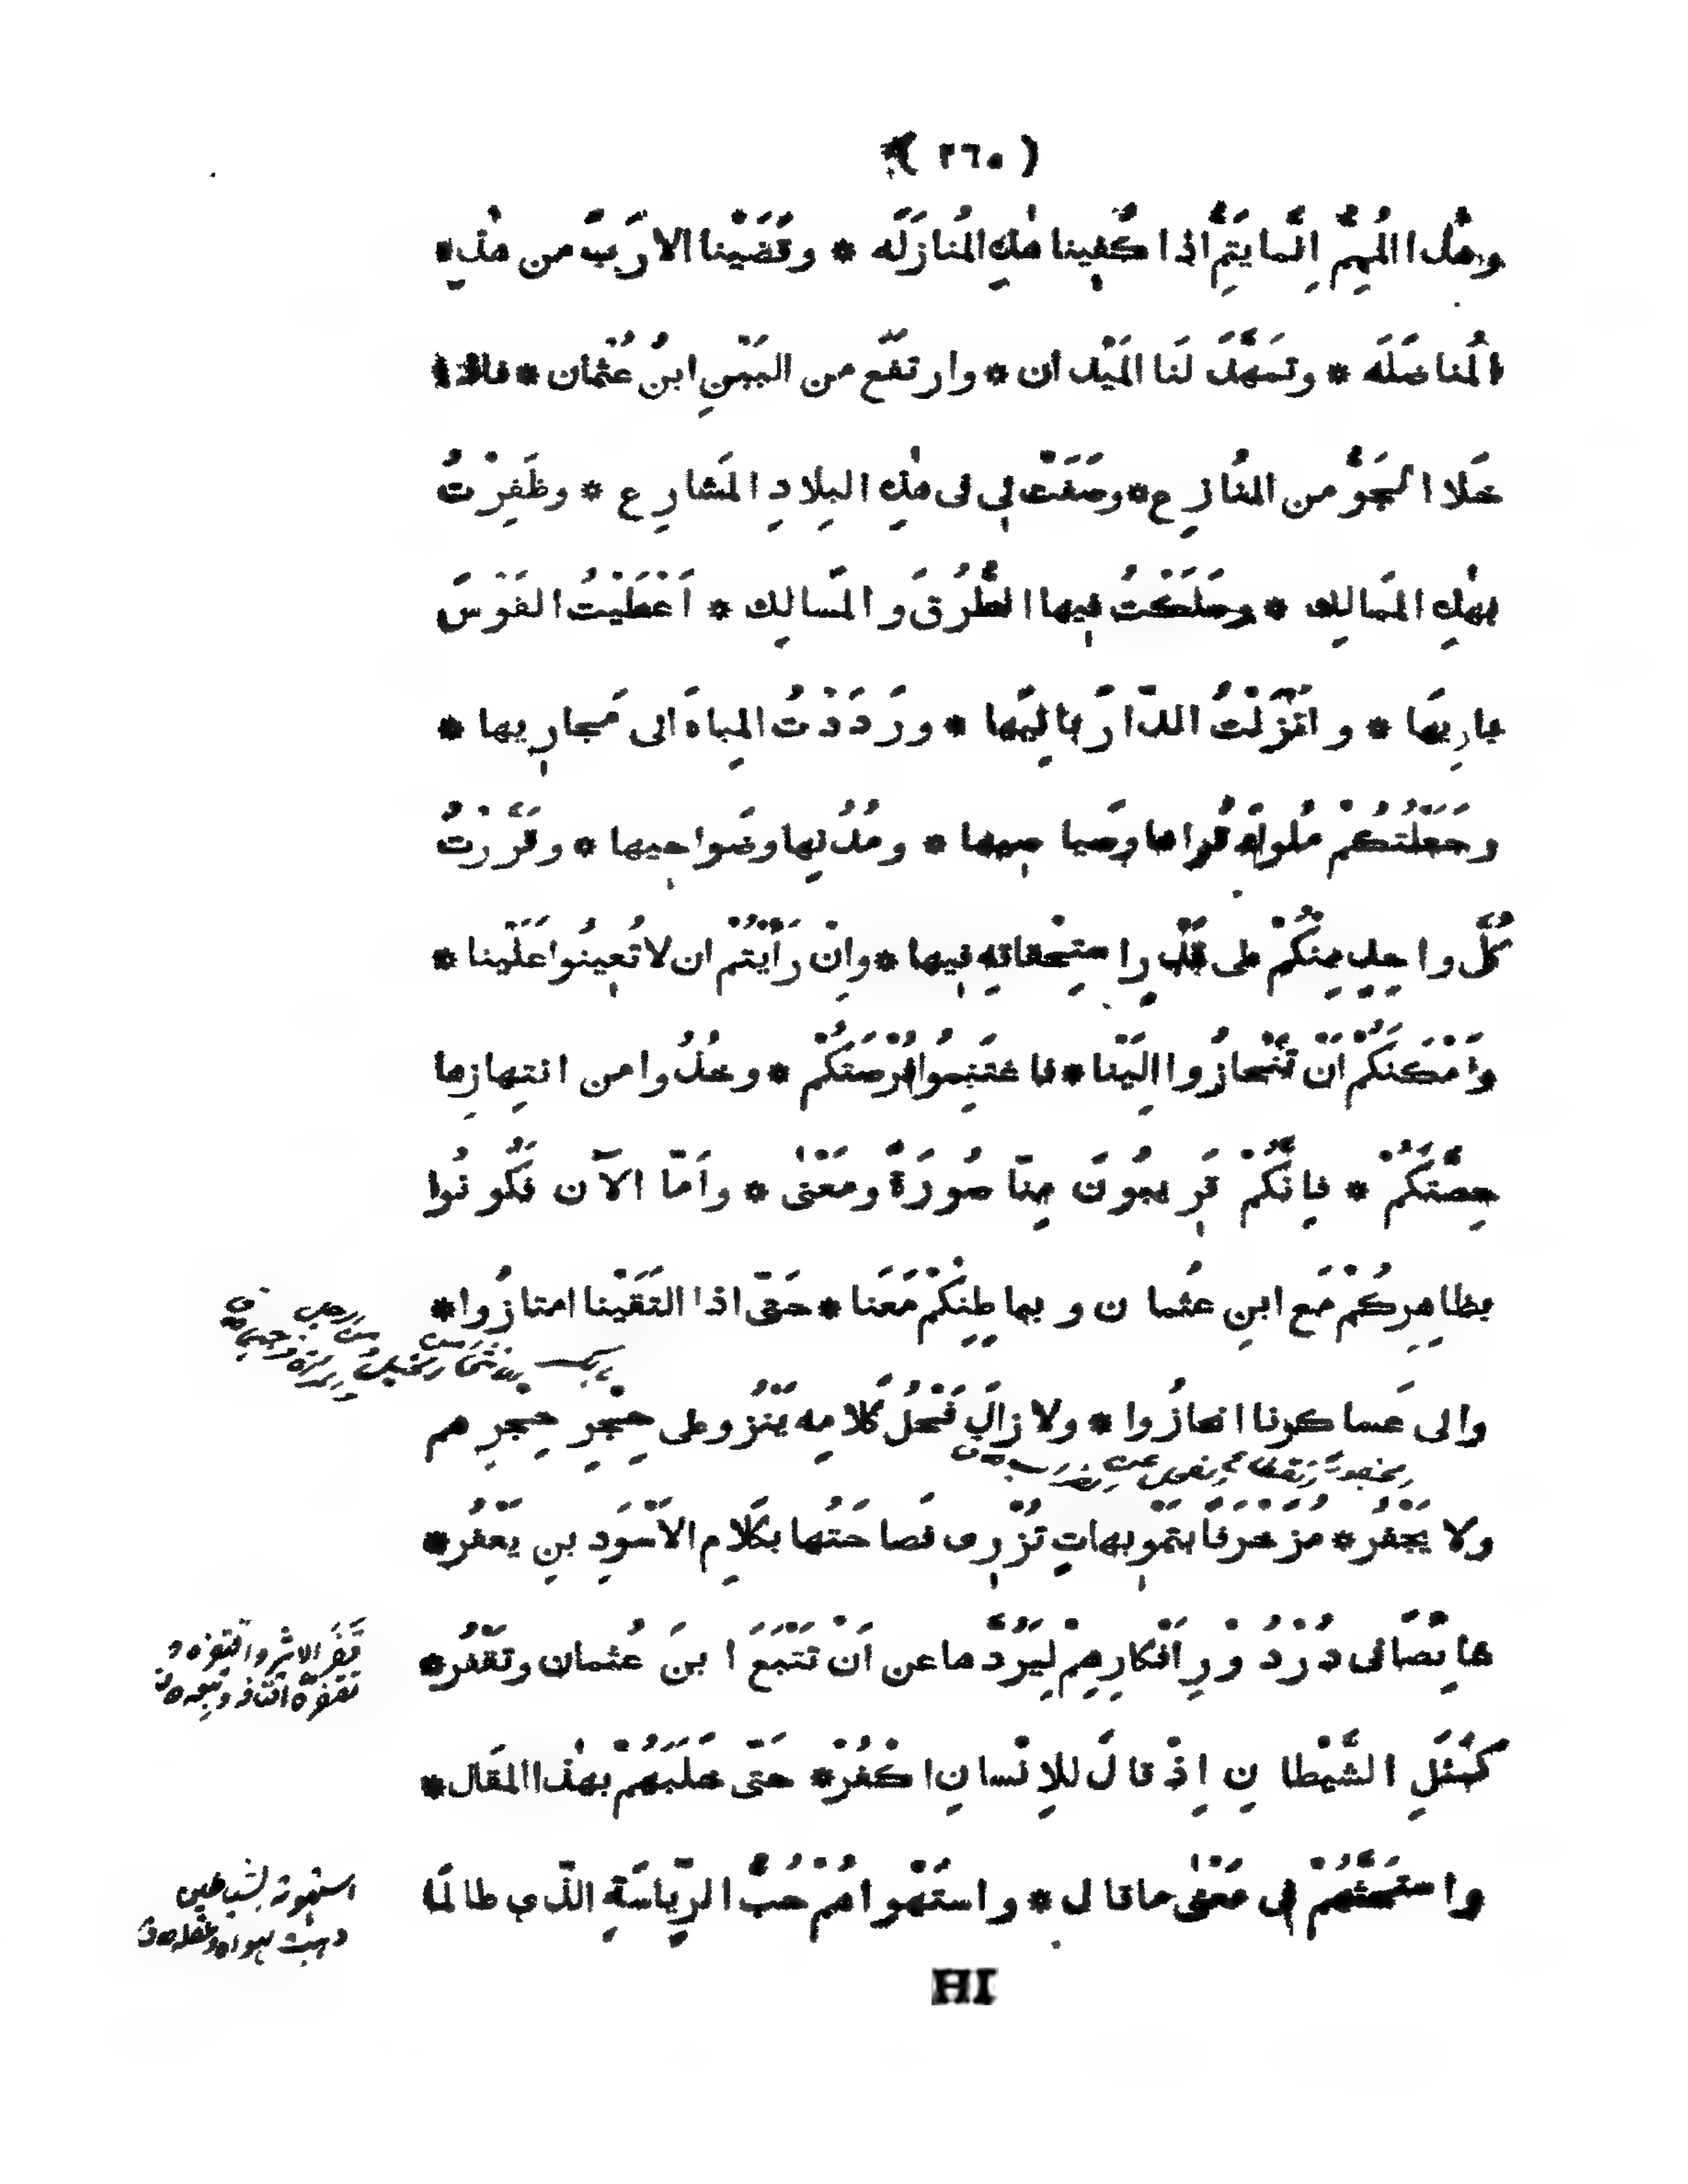 ( ٢٦٠ )
وهٰذا المُهِمُّ اِنَّما يَتِمُّ اذا كُفِينا هٰذِهِ المُنازَلَه * وقَضَيْنا الارَبَ من هٰذِهِ
المُناضَلَه * وتمَهَّدَ لَنا المَيْدان * وارتفَع من البَيْنِ ابنُ عُثْمان * فاذا
خَلا الجَوُّ من المُنازِع * وصَفَتْ لِي فى هٰذِه البِلادِ المَشارِع * وظَفِرْتُ
بهٰذِه المَمالِك * وسَلَكْتُ فِيها الطُّرُقَ والمَسالِك * اَعْطَيْتُ القَوْسَ
بارِيَها * وانْزَلْتُ الدّارَ بانِيَها * ورَدَدْتُ المِياهَ الى مَجارِيها *
وجَعَلْتُكُمْ مُلوكَ قُراها وصَياصِيها * ومُدُنِها وضَواحِيها * وقَرَّرْتُ
كُلَّ واحِدٍ مِنْكُمْ على قَدْرِ اسْتِحْقاقِهِ فِيها * وانْ رَأَيْتُمْ ان لا تُعِينُوا عَلَيْنا *
واَمْكَنَكُمْ اَنْ تَنْحازُوا اِلَيْنا * فاغْتَنِمُوا فُرْصَتَكُمْ * وخُذُوا من انتِهازِها
حِصَّتَكُمْ * فاِنَّكُمْ قَرِيبُونَ مِنّا صُورَةً ومَعْنٰى * واَمّا الآن فكُونُوا
بظاهِرِكُمْ مَع ابنِ عُثمان وبباطِنِكُمْ مَعَنا * حَتّى اذا التَقَيْنا امتازُوا *
والى عَساكرنا انحازُوا * ولا زالَ فَحْلُ كَلامِه يَنْزُو على حِجْرِ حِجْرِهم
ولا يَجْفُر * مُزَخْرَفًا بتَمْوِيهاتٍ تُزْرِى فَصاحَتُها بكَلامِ الاَسْوَدِ بنِ يَعْفُر *
غائِصًا فى دُرْدُورِ اَفْكارِهِمْ لِيَرُدَّها عن اَنْ تَتْبَعَ ابنَ عُثمان وتَقْفُر *
كَمَثَلِ الشَّيْطانِ اِذْ قالَ للاِنْسانِ اكْفُرْ * حَتّى خَلَبَهُمْ بهٰذا المَقال *
واستَحَثَّهُمْ الى مَعْنٰى ما قال * واستَهْواهُمْ حُبُّ الرِّياسَةِ الَّذي طالَما
HI